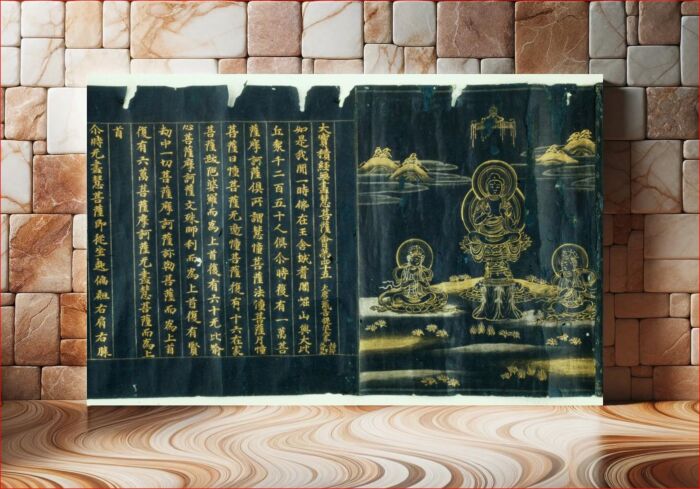 大寶積經無盡慧菩薩會第卌五
如是我聞一時佛在王舍城耆闍崛山與大比
丘衆千二百五十人俱尒時復有一萬菩
薩摩訶薩俱所謂慧幢菩薩法幢菩薩月幢
菩薩日幢菩薩无邊幢菩薩復有十六在家
菩薩跋陀婆羅而為上首復有六十无比喻
心菩薩摩訶薩文殊師利而為上首復有賢
劫中一切菩薩摩訶薩弥勒菩薩而為上首
復有六万菩薩摩訶薩无盡慧菩薩而為上
首
尒時无盡慧菩薩即從坐起偏袒右肩右膝